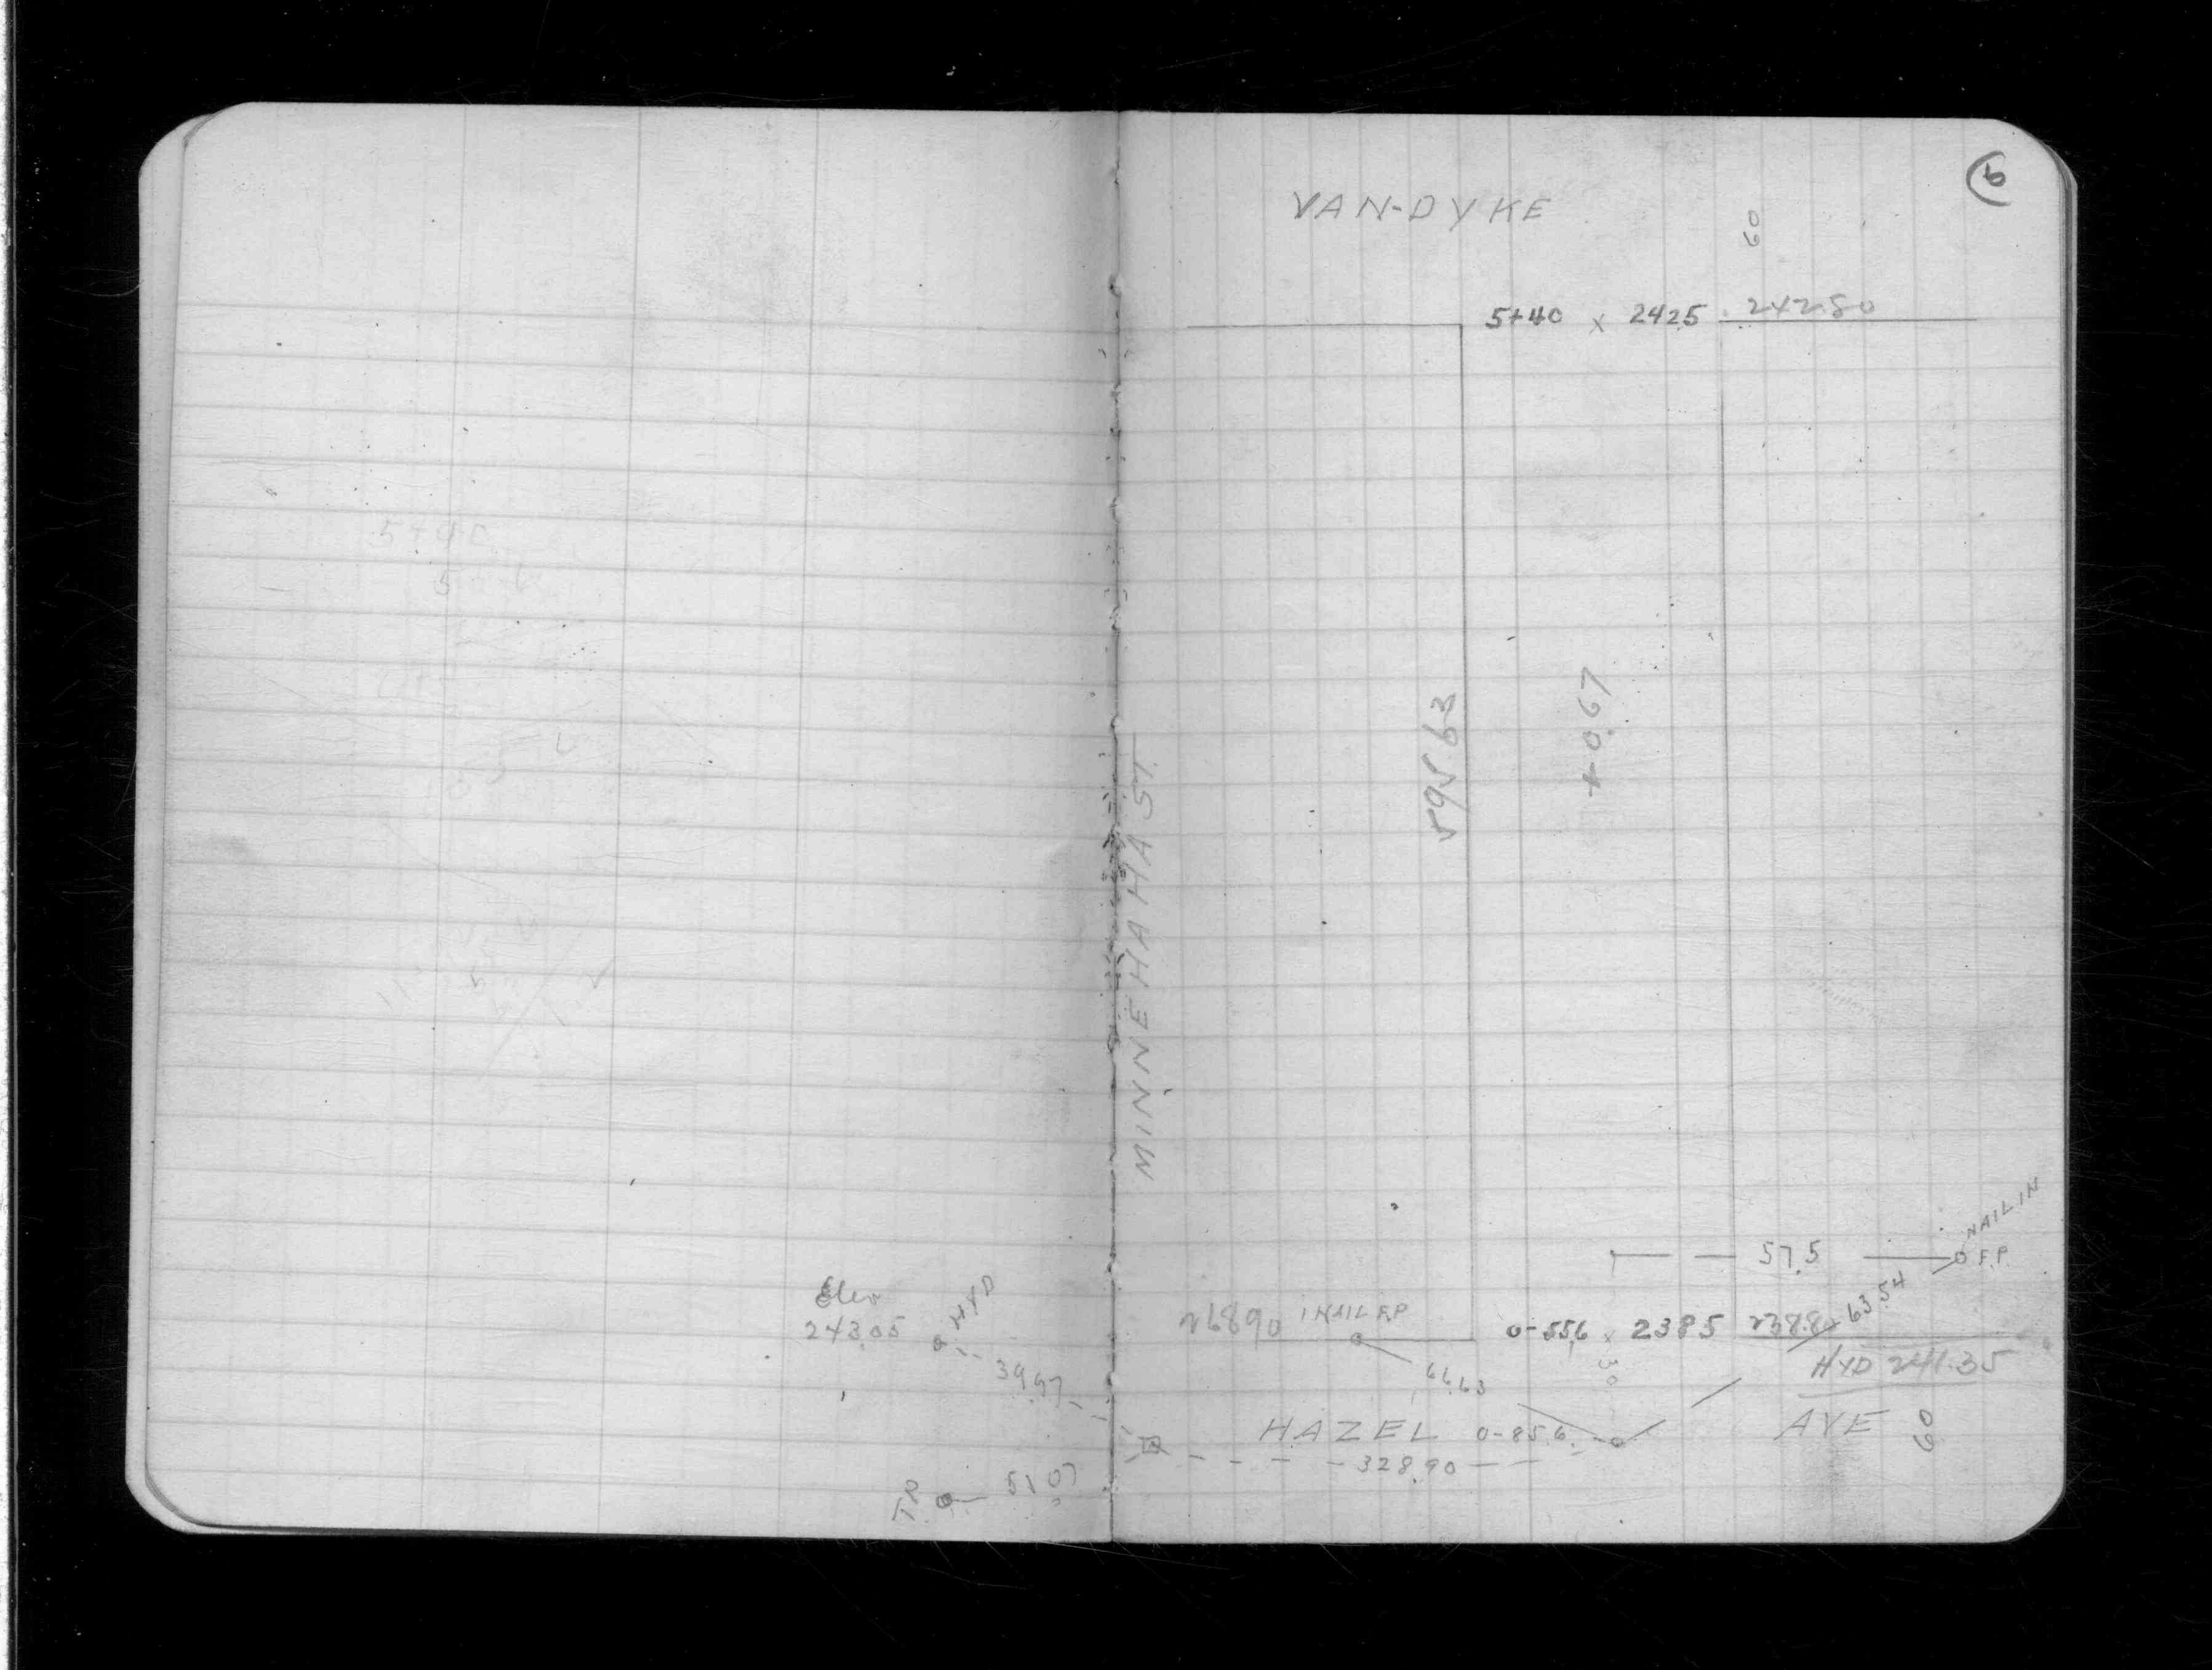 6
VAN-DYKE
60
5+40 x 2425 242.80
5+40
595.63
+0.67
MINNEHAHA ST.
NAIL IN
57.5 F.P.
Elev
243.05
HYD
39.97
268.90 1 NAIL F.P.
0-55.6 x 2385 238.80 63.54
HYD 241.35
66.63
30
HAZEL 0-85.6 AVE 60
328.90
51.07